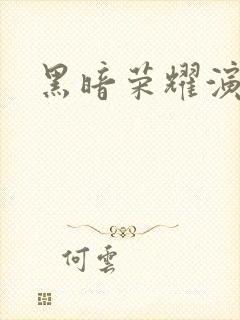 黑暗荣耀演
何雲